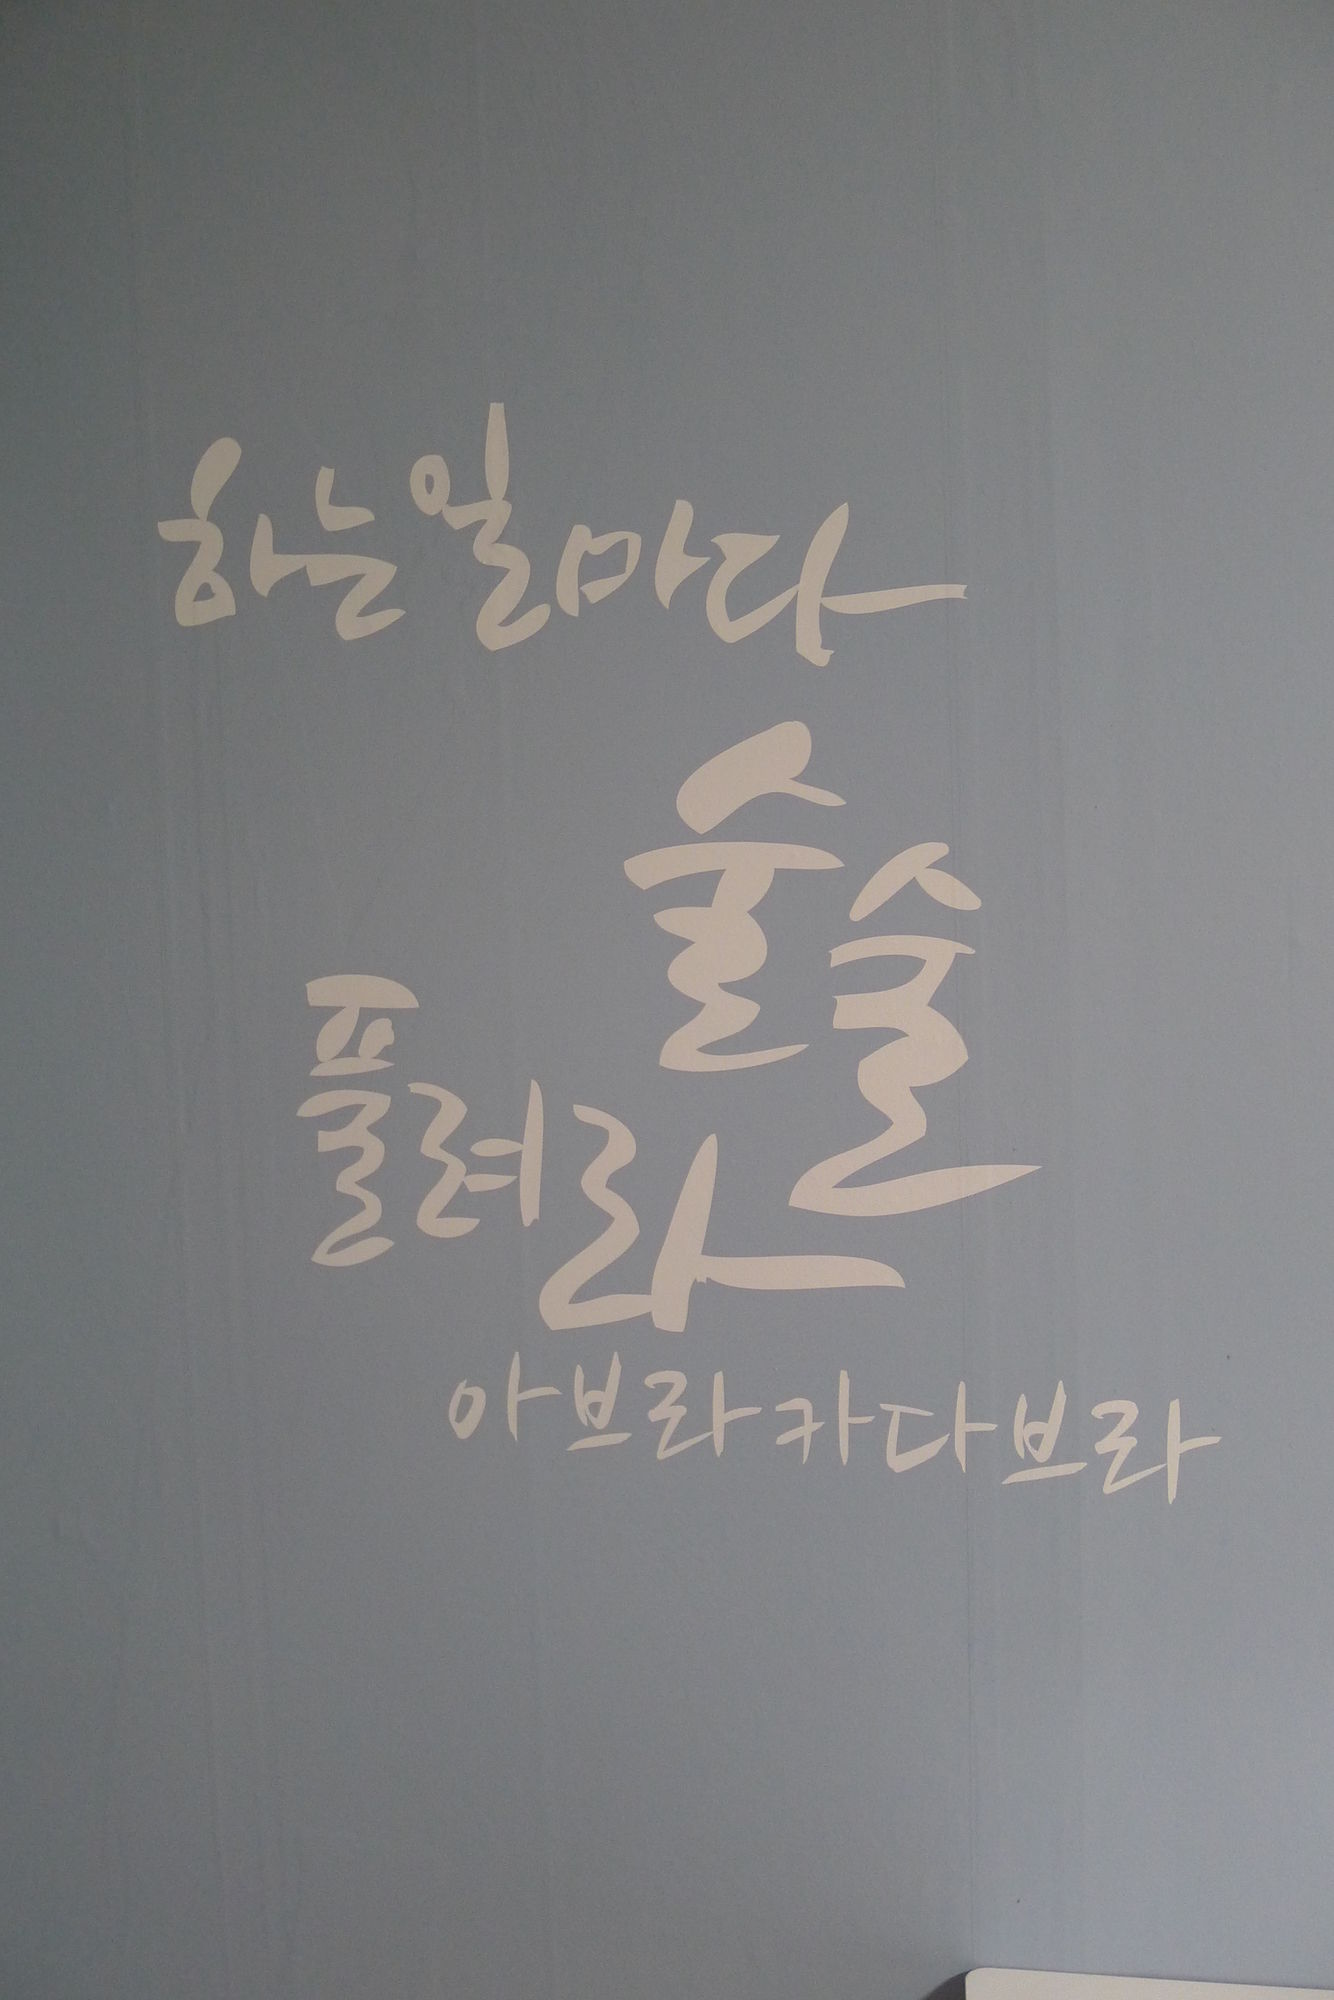 하는 일마다
술술
플려라
아브라카다브라